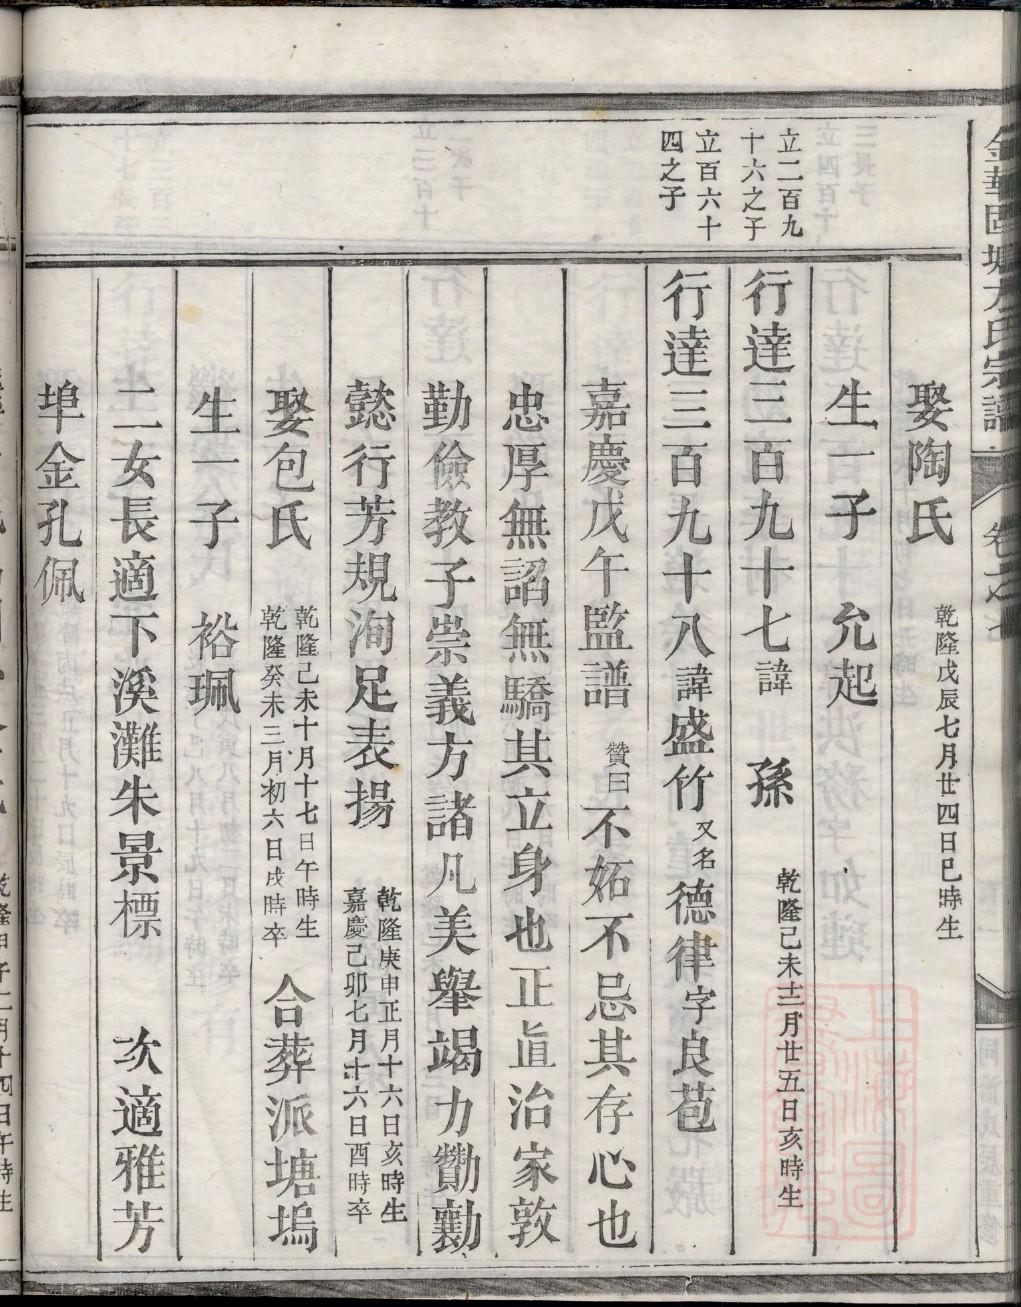 金華區塘方氏宗譜 卷之七
娶陶氏 乾隆戊辰七月廿四日巳時生
生一子 允起
立二百九
十六之子
行達三百九十七諱 孫 乾隆己未十二月廿五日亥時生
立百六十
四之子
行達三百九十八諱盛竹又名德律字良苞
嘉慶戊午監譜 贊曰不妬不忌其存心也
忠厚無謟無驕其立身也正直治家敦
勤儉教子崇義方諸凡美舉竭力勷勷
懿行芳規洵足表揚 乾隆庚申正月十六日亥時生
嘉慶己卯七月十六日酉時卒
娶包氏 乾隆己未十月十七日午時生
乾隆癸未三月初六日戌時卒 合葬派塘塢
生一子 裕珮
二女長適下溪灘朱景標 次適雅芳
埠金孔佩